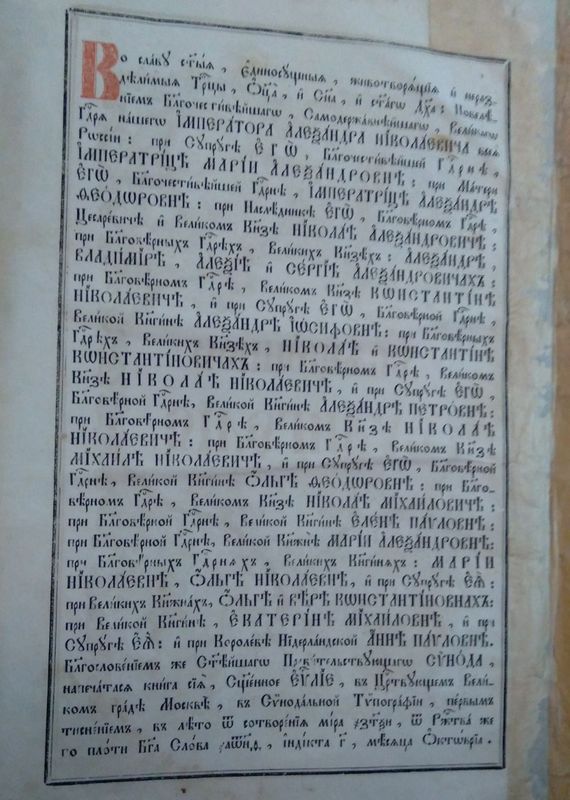 Во славу ст҃ыѧ, є҆диносꙋщныѧ, животворѧщїѧ и҆ нераз-
дѣлимыѧ Трⷪ҇цы, Ѻ҆ц҃а̀, и҆ Сн҃а, и҆ ст҃а́гѡ Дх҃а: Повелѣ-
нїемъ Бл҃гочести́вѣйшагѡ, Самодержа́внѣйшагѡ, Вели́кагѡ
Гдⷭ҇рѧ на́шегѡ І҆МПЕРА́ТОРА А҆ЛЕѮА́НДРА НІКОЛА́ЕВИЧА всеѧ̀
Рѡссі́и: при Сꙋпрꙋ́гѣ Є҆ГѠ̀, Бл҃гочести́вѣйшей Гдⷭ҇рнѣ,
І҆МПЕРАТРІ́ЦѢ МАРІ́И А҆ЛЕѮА́НДРОВНѢ: при Ма́тери
Є҆ГѠ̀, Бл҃гочести́вѣйшей Гдⷭ҇рнѣ, І҆МПЕРАТРІ́ЦѢ А҆ЛЕѮА́НДРѢ
ѲЕѠ́ДѠРОВНѢ: при Наслѣ́дникѣ Є҆ГѠ̀, Бл҃говѣ́рномъ Гдⷭ҇рѣ,
Цесаре́вичѣ и҆ Вели́комъ Кн҃зѣ НІКОЛА́Ѣ А҆ЛЕѮА́НДРОВИЧѢ:
при Бл҃говѣ́рныхъ Гдⷭ҇рѣхъ, Вели́кихъ Кн҃зѣхъ: А҆ЛЕѮА́НДРѢ,
ВЛАДИ́МІРѢ, А҆ЛЕѮІ́Ѣ и҆ СЕ́РГІѢ А҆ЛЕѮА́НДРОВИЧАХЪ:
при Бл҃говѣ́рномъ Гдⷭ҇рѣ, Вели́комъ Кн҃зѣ КѠНСТАНТІ́НѢ
НІКОЛА́ЕВИЧѢ, и҆ при Сꙋпрꙋ́гѣ Є҆ГѠ̀, Бл҃говѣ́рной Гдⷭ҇рнѣ,
Вели́кой Кн҃ги́нѣ А҆ЛЕѮА́НДРѢ І҆Ѡ́СИФОВНѢ: при Бл҃говѣ́рныхъ
Гдⷭ҇рѣхъ, Вели́кихъ Кн҃зѣхъ, НІКОЛА́Ѣ и҆ КѠНСТАНТІ́НѢ
КѠНСТАНТІ́НОВИЧАХЪ: при Бл҃говѣ́рномъ Гдⷭ҇рѣ, Вели́комъ
Кн҃зѣ НІКОЛА́Ѣ НІКОЛА́ЕВИЧѢ, и҆ при Сꙋпрꙋ́гѣ Є҆ГѠ̀,
Бл҃говѣ́рной Гдⷭ҇рнѣ, Вели́кой Кн҃ги́нѣ А҆ЛЕѮА́НДРѢ ПЕТРО́ВНѢ:
при Бл҃говѣ́рномъ Гдⷭ҇рѣ, Вели́комъ Кн҃зѣ НІКОЛА́Ѣ
НІКОЛА́ЕВИЧѢ: при Бл҃говѣ́рномъ Гдⷭ҇рѣ, Вели́комъ Кн҃зѣ
МІХАИ́ЛѢ НІКОЛА́ЕВИЧѢ, и҆ при Сꙋпрꙋ́гѣ Є҆ГѠ̀, Бл҃говѣ́рной
Гдⷭ҇рнѣ, Вели́кой Кн҃ги́нѣ Ѻ҆́ЛЬГѢ ѲЕѠ́ДѠРОВНѢ: при Бл҃го-
вѣ́рномъ Гдⷭ҇рѣ, Вели́комъ Кн҃зѣ НІКОЛА́Ѣ МІХАИ́ЛОВИЧѢ:
при Бл҃говѣ́рной Гдⷭ҇рнѣ, Вели́кой Кн҃ги́нѣ Є҆ЛЕ́НѢ ПА́ѴЛОВНѢ:
при Бл҃говѣ́рной Гдⷭ҇рнѣ, Вели́кой Кн҃жнѣ̀ МАРІ́И А҆ЛЕѮА́НДРОВНѢ:
при Бл҃говѣ́рныхъ Гдⷭ҇рнѧхъ, Вели́кихъ Кн҃ги́нѧхъ: МАРІ́И
НІКОЛА́ЕВНѢ, Ѻ҆́ЛЬГѢ НІКОЛА́ЕВНѢ, и҆ при Сꙋпрꙋ́гѣ Є҆Ѧ̀:
при Вели́кихъ Кн҃жна́хъ, Ѻ҆́ЛЬГѢ и҆ ВѢ́РѢ КѠНСТАНТІ́НОВНАХЪ:
при Вели́кой Кн҃ги́нѣ, Є҆КАТЕРІ́НѢ МІХА́ЙЛОВНѢ, и҆ при
Сꙋпрꙋ́гѣ Є҆Ѧ̀: и҆ при Короле́вѣ Ні́дерла́ндской А҆́ННѢ ПА́ѴЛОВНѢ.
Благослове́нїемъ же Ст҃ѣ́йшагѡ Прави́тельствꙋющагѡ СѴНО́ДА,
напеча́тасѧ кни́га сїѧ̀, Сщ҃е́нное Є҆ѵⷢ҇лїе, въ Црⷭ҇твꙋющемъ Вели́-
комъ гра́дѣ Москвѣ̀, въ Сѵнода́льной Тѵпогра́фїи, пе́рвымъ
тисне́нїемъ, въ лѣ́то ѿ сотворе́нїѧ мі́ра ҂зт҃ѯи, ѿ Ржⷭ҇тва̀ же
по пло́ти Бг҃а Сло́ва ҂аѡ҃нѳ, і҆ндї́кта г҃, мѣ́сѧца Ѻ҆ктѡ́врїа.